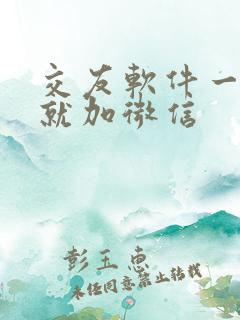 交友軟件一
就加微信
彭玉惠
未經同意禁止轉載